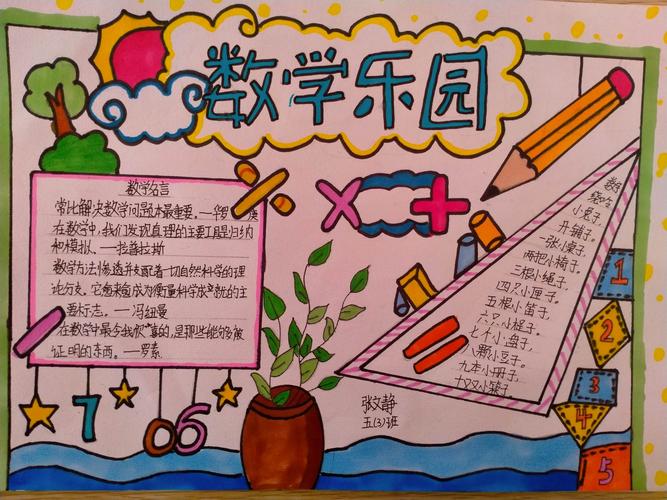 数学乐园
数学名言
常比解决数学问题本最重要。一华罗庚
在数学中,我们发现真理的主要工具是归纳
和模拟。一拉普拉斯
数学方法惨透并支配着一切自然科学的理
论分支。它愈来愈成为衡量科学成就的主
要标志。一冯纽曼
在数学中最令我欣喜的,是那些能够被
证明的东西。一罗素
数学
小兔子,
开铺子,
一张小桌子,
两把小椅子,
三根小绳子,
四只小匣子,
五根小笛子,
六只小棍子,
七个小盘子,
八颗小豆子,
九本小册子,
十双小筷子。
1
2
3
4
5
7
0
6
张文静
五(3)班